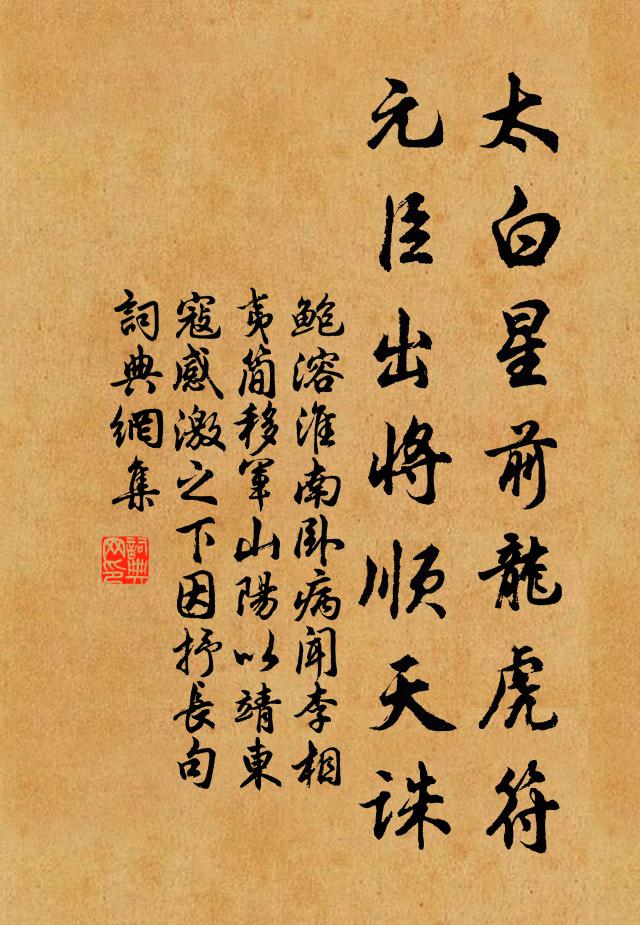 太白星前龍虎符
元臣出將順天誅
鮑溶淮南卧病聞李相
夷簡移軍山陽以靖東
寇感激之下因抒長句
詞典網集
詞典網印